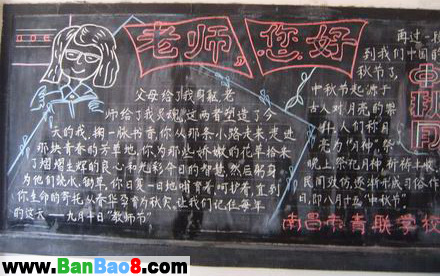 老师，您好
父母给了我身躯，老
师给了我灵魂，这两者塑造了今
天的我，掬一脉书香，你从那条小路走来，走进
那块青春的芳草地，你为那些娇嫩的花草拾来
了熠熠生辉的良心和光彩夺目的智慧，然后躬身
为他们浇水、锄草，你日复一日地哺育着呵护着，直到
你生命的寄托从春华孕育为秋实，让我们记住每年
的这天——九月十日"教师节"
再过一
到我们中国的
秋节了，
中秋节起源于
古人对月亮的崇
拜，人们称月
亮为"月神"，祭
晚上祭月神，祈祷丰收
民间效仿，逐渐形成习俗
日，即八月十五"中秋节"
中秋
南昌市青联学校
www.BanBao8.com